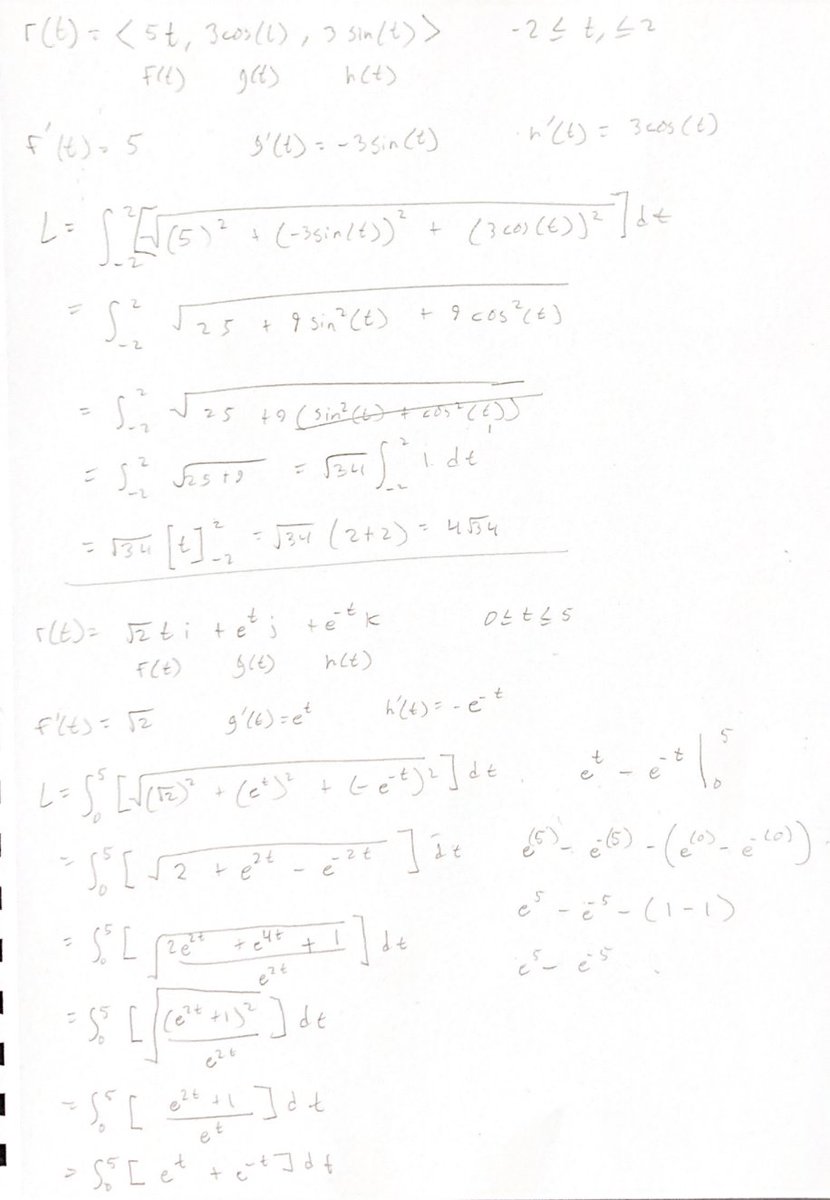 r(t) = < 5t, 3cos(t), 3 sin(t) > -2 ≤ t, ≤ 2
f(t) g(t) h(t)
f'(t) = 5 g'(t) = -3sin(t) h'(t) = 3cos(t)
L = ∫_{-2}^{2} [√((5)² + (-3sin(t))² + (3cos(t))²)] dt
= ∫_{-2}^{2} √(25 + 9 sin²(t) + 9 cos²(t))
= ∫_{-2}^{2} √(25 + 9 (sin²(t) + cos²(t))) 1
= ∫_{-2}^{2} √(25+9) = √34 ∫_{-2}^{2} 1. dt
= √34 [t]_{-2}^{2} = √34 (2+2) = 4√34
r(t) = √2 t i + e^t j + e^{-t} k 0 ≤ t ≤ 5
f(t) g(t) h(t)
f'(t) = √2 g'(t) = e^t h'(t) = -e^{-t}
L = ∫_0^5 [√((√2)² + (e^t)² + (-e^{-t})²)] dt
= ∫_0^5 [√(2 + e^{2t} - e^{-2t})] dt
= ∫_0^5 [√((2e^{2t} + e^{4t} + 1)/e^{2t})] dt
= ∫_0^5 [√((e^{2t} + 1)²/e^{2t})] dt
= ∫_0^5 [(e^{2t} + 1)/e^t] dt
= ∫_0^5 [e^t + e^{-t}] dt
e^t - e^{-t} |_0^5
e^{(5)} - e^{-(5)} - (e^{(0)} - e^{-(0)})
e^5 - e^{-5} - (1 - 1)
e^5 - e^{-5}